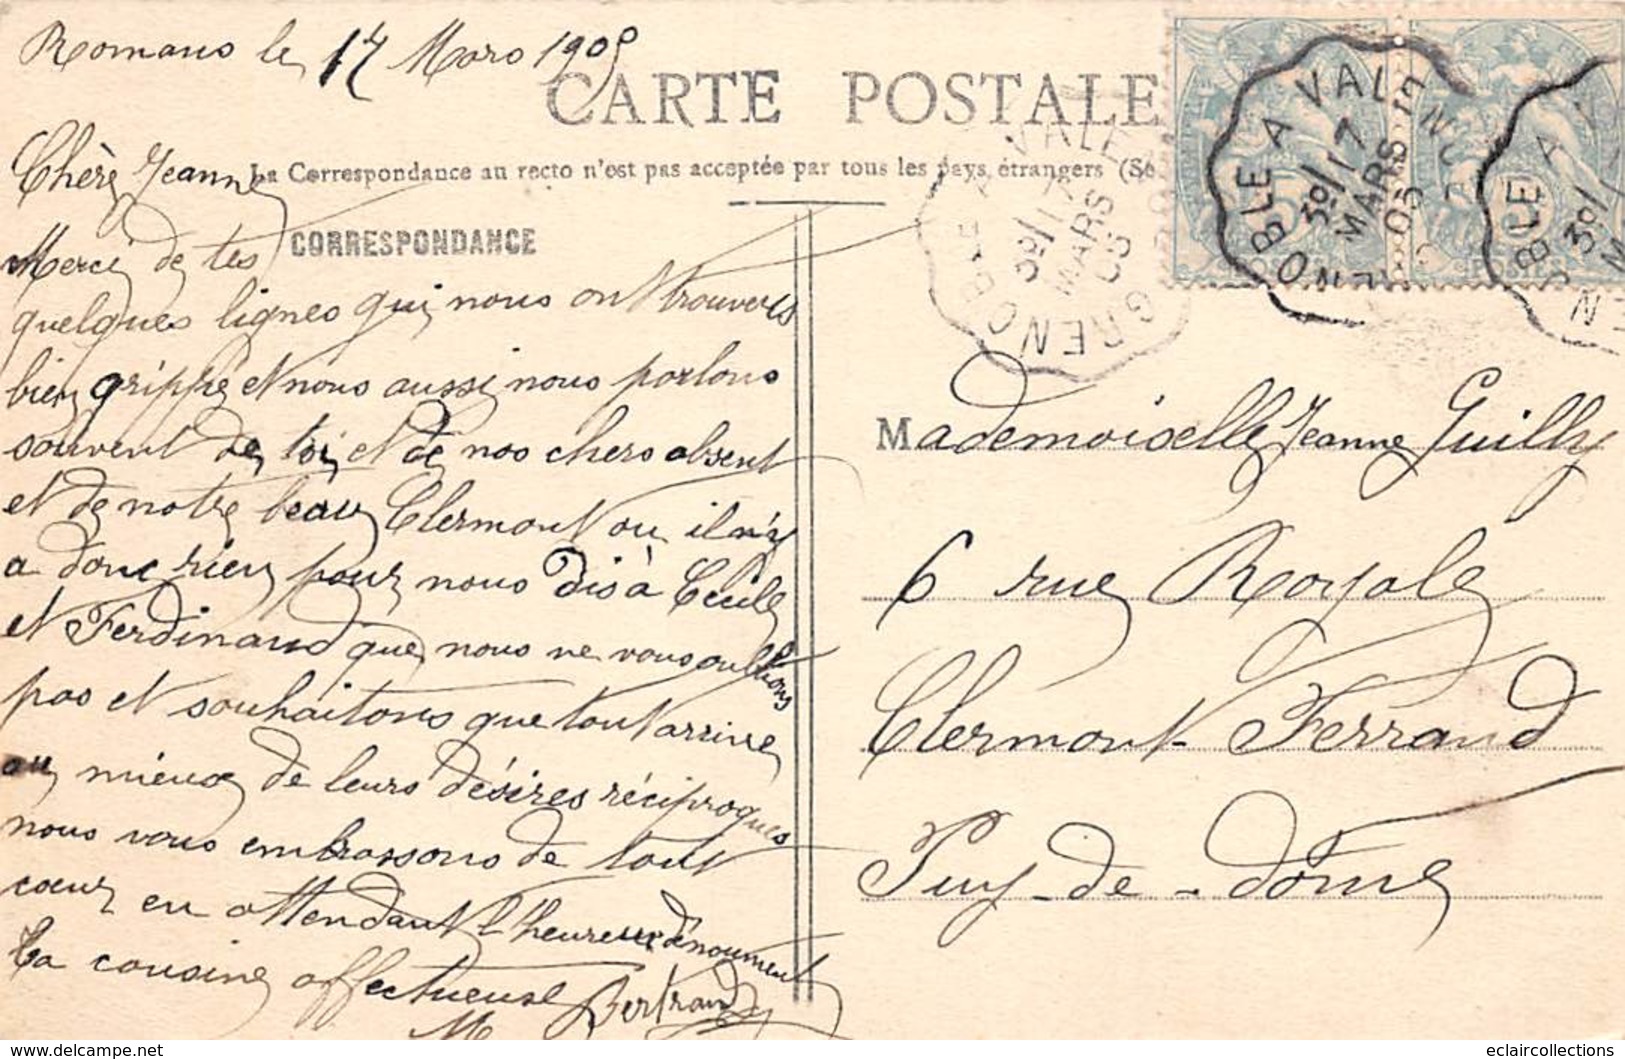 Romans le 17 Mars 1905
CARTE POSTALE
La Correspondance au recto n'est pas acceptée par tous les pays étrangers (Se
CORRESPONDANCE
Chère Jeanne
Merci de tes
quelques lignes qui nous ont trouvers
bien grippé et nous aussi nous parlons
souvent de toi et de nos chers absent
et de notre beau Clermont ou il n'y
a donc rien pour nous Dis à Cécile
et Ferdinand que nous ne vous oublions
pas et souhaitons que tout arrive
au mieux de leurs désires réciproques
nous vous embrassons de tout
cœur en attendant l'heureux dénoument
Ta cousine affectueuse Bertrand
M
GRENOBLE A VALENCE
3º/17
MARS
05
GRENOBLE A VAL
3º/17
MARS
05
POSTES
Mademoiselle Jeanne Guilhy
6 rue Royale
Clermont-Ferrand
Puy-de-dôme
eclaircollections